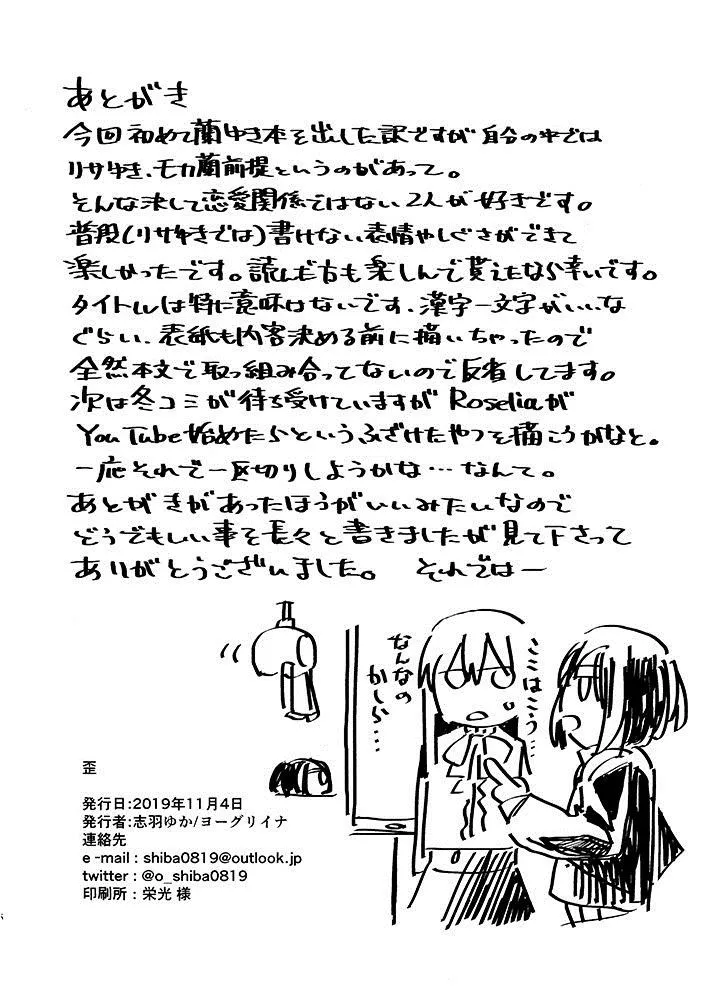 あとがき
今回初めて蘭ゆき本を出した訳ですが自分の中では
リサゆき、モカ蘭前提というのがあって。
そんな決して恋愛関係ではない2人が好きです。
普段(リサゆきでは)書けない表情やしぐさができて
楽しかったです。読んだ方も楽しんで貰えたなら幸いです。
タイトルは特に意味はないです、漢字一文字がいいな
ぐらい、表紙も内容決める前に描いちゃったので
全然本文で取っ組み合ってないので反省してます。
次は冬コミが待ち受けていますがRoseliaが
YouTube始めたらというふざけたやつを描こうかなと。
一応それで一区切りしようかな…なんて。
あとがきがあったほうがいいみたいなので
どうでもいい事を長々と書きましたが見て下さって
ありがとうございました。 それでは一
ここはこう…
なんなの
かしら…
歪
発行日:2019年11月4日
発行者:志羽ゆか/ヨーグリイナ
連絡先
e -mail : shiba0819@outlook.jp
twitter : @o_shiba0819
印刷所 : 栄光 様